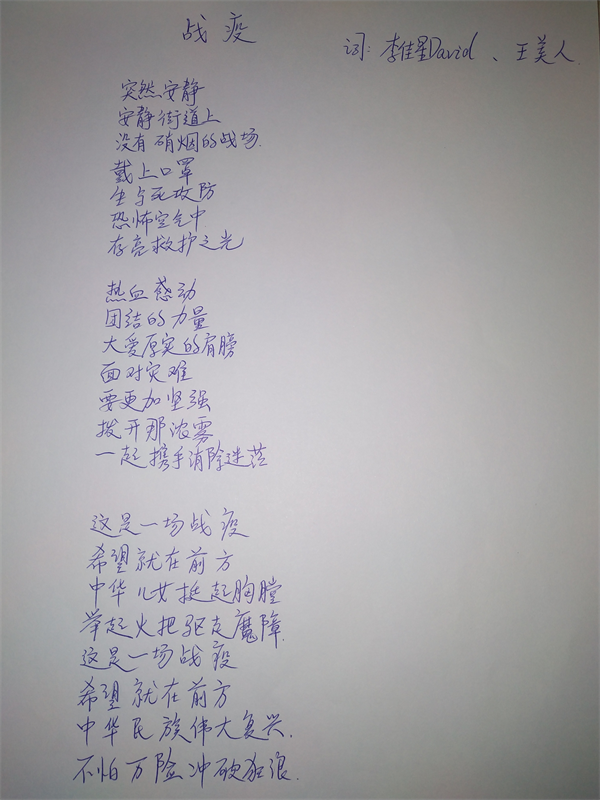 战疫
词：李佳星David、王美人
突然安静
安静街道上
没有硝烟的战场.
戴上口罩
生与死攻防
恐怖空气中
存亮救护之光
热血感动
团结的力量
大爱厚实的肩膀
面对灾难
要更加坚强
拨开那浓雾
一起携手消除迷茫
这是一场战疫
希望就在前方
中华儿女挺起胸膛
举起火把驱走魔障.
这是一场战疫
希望就在前方
中华民族伟大复兴.
不怕万险冲破狂浪.